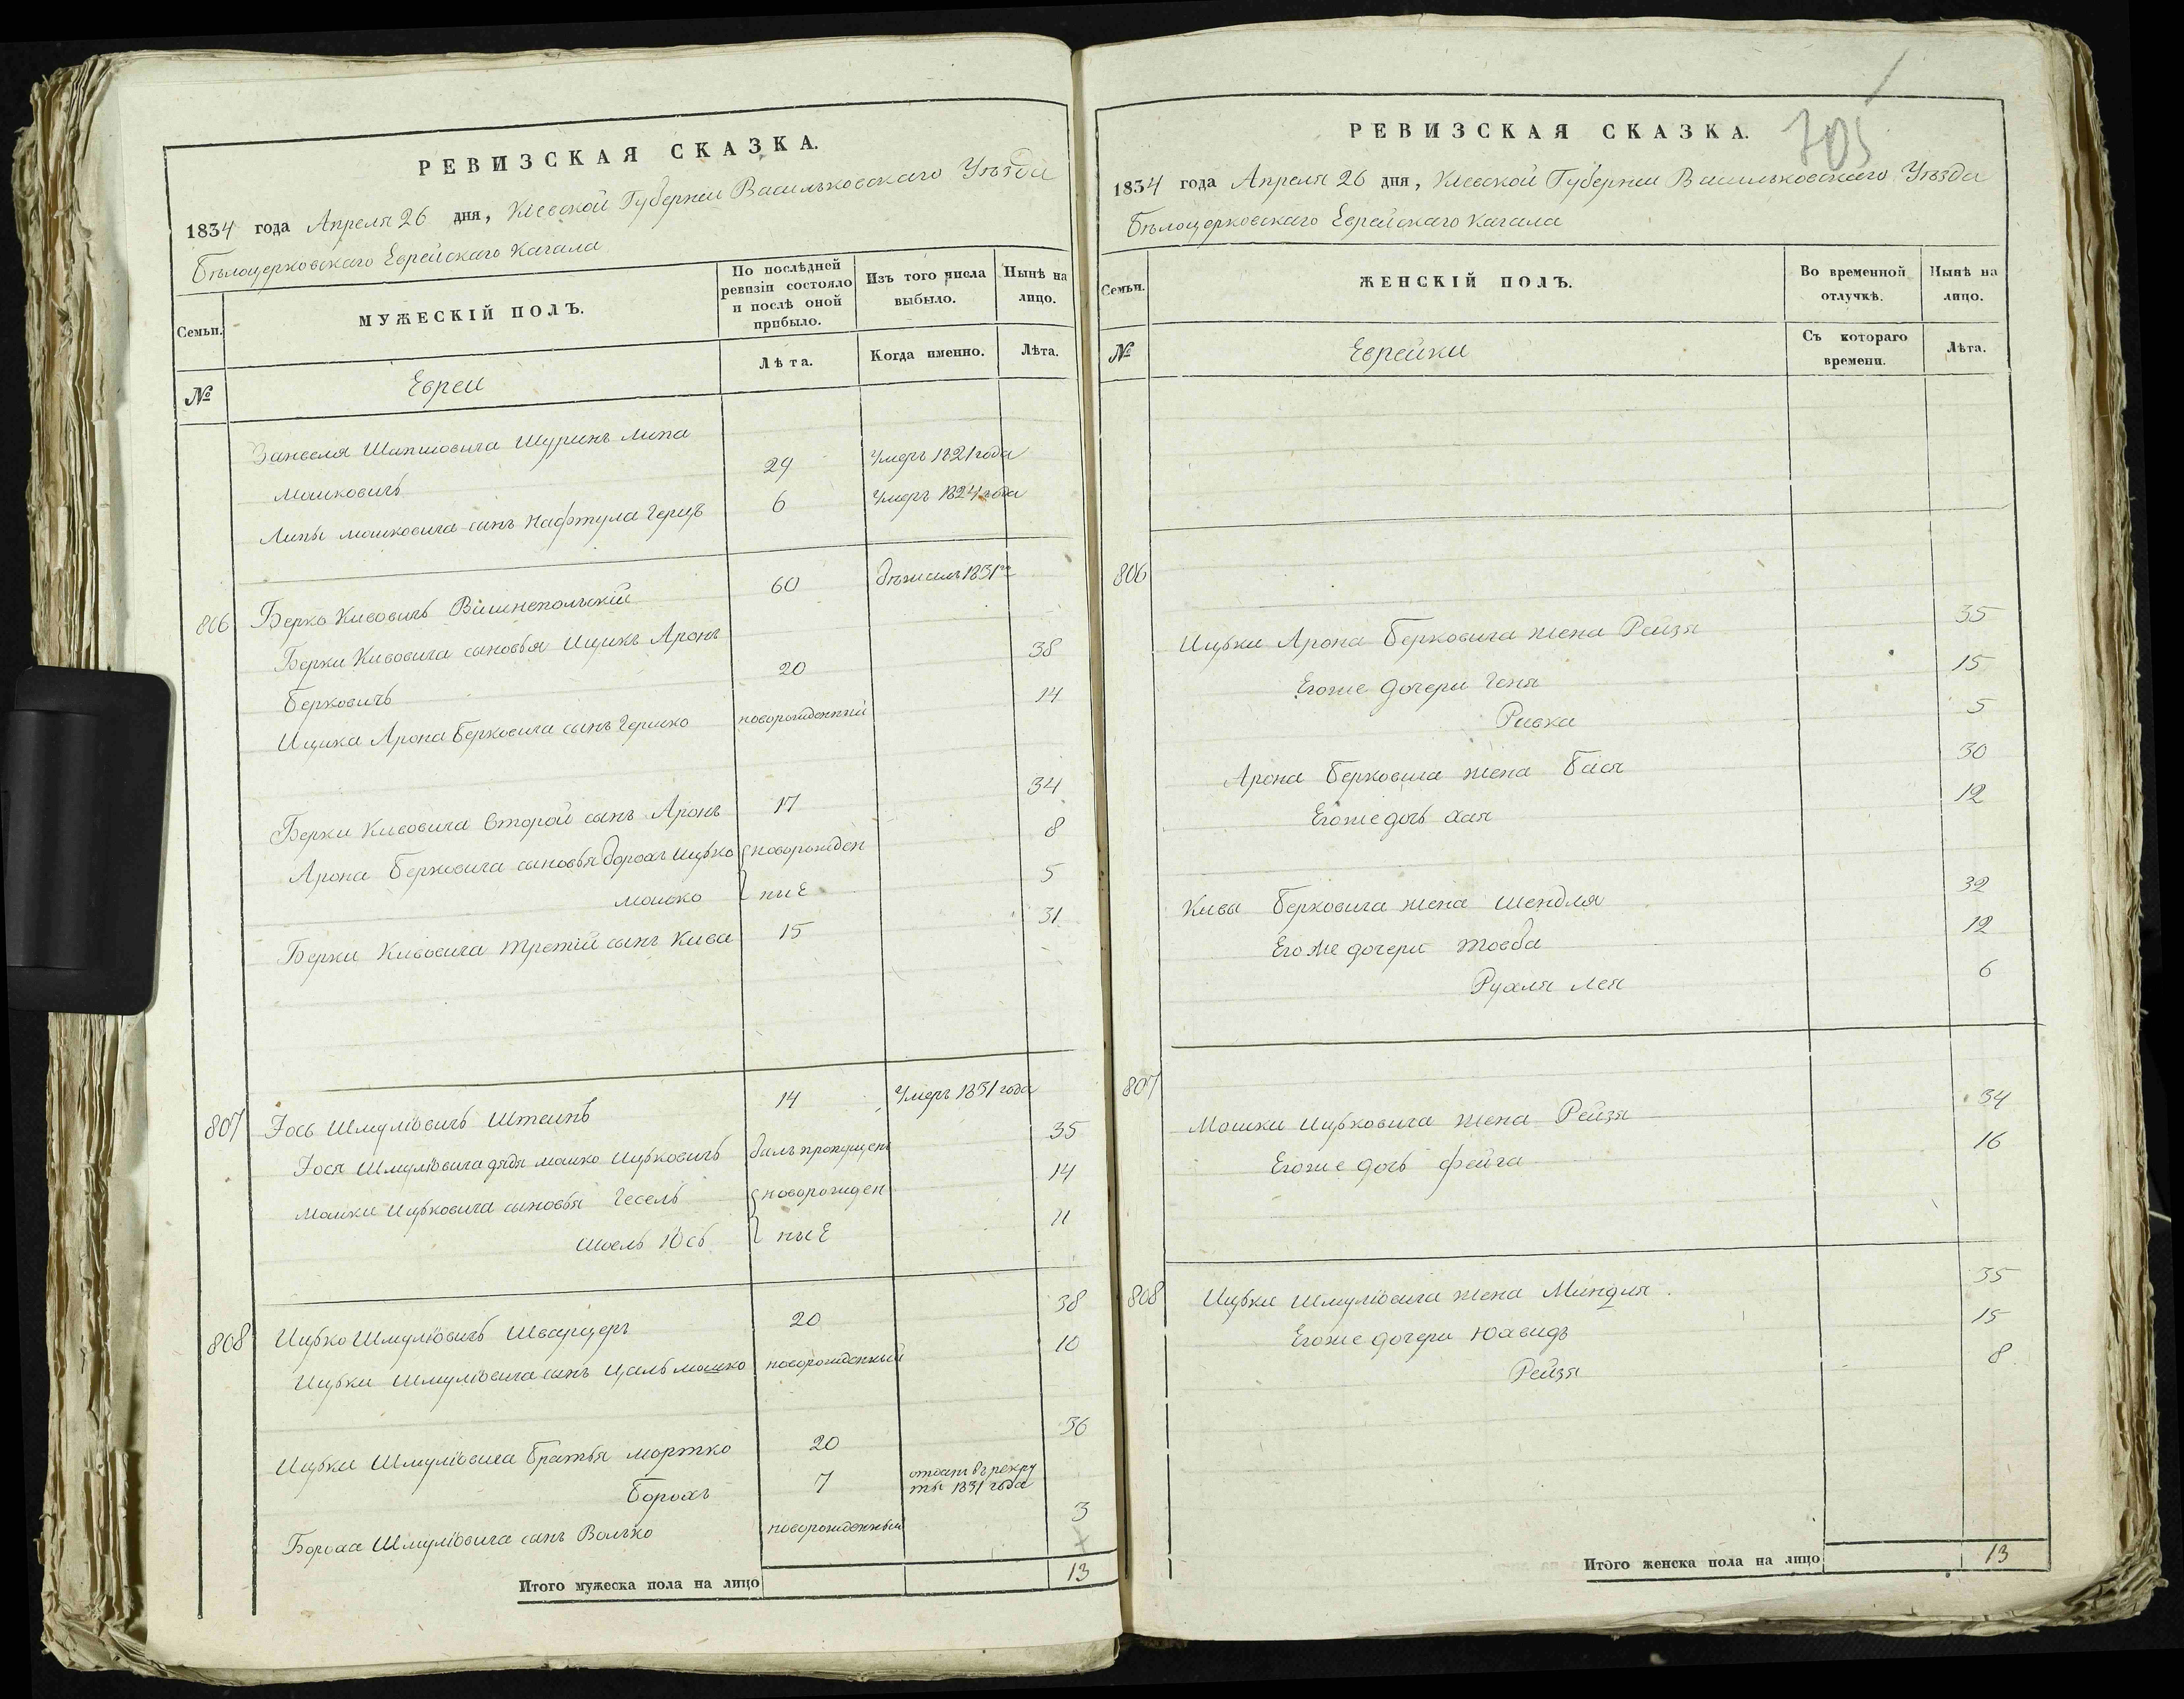 РЕВИЗСКАЯ СКАЗКА.
1834 года Апреля 26 дня, Кіевской Губерніи Васильковскаго Уѣзда
Бѣлоцерковскаго Еврейскаго Кагала
Семьи.
МУЖЕСКІЙ ПОЛЪ.
По послѣдней ревизіи состояло и послѣ оной прибыло.
Изъ того числа выбыло.
Нынѣ на лицо.
№
Евреи
Лѣта.
Когда именно.
Лѣта.
Занвеля Шапшовича Шуринъ Липа
Мошковичъ 24 Умеръ 1821 года
Липы Мошковича сынъ Нафтула Герцъ 6 Умеръ 1824 года
806 Берко Кивовичъ Вишнепольскій 60 бѣжалъ 1831го
Берки Кивовича сыновья Ицикъ Аронъ
Берковичъ 20 38
Ицика Арона Берковича сынъ Гершко новорожденный 14
Берки Кивовича второй сынъ Аронъ 17 34
Арона Берковича сыновья Борохъ Ицько новорожден 8
Мошко ные 5
Берки Кивовича третій сынъ Кива 15 31
807 Іось Шмуліовичъ Штеинъ 14 Умеръ 1831 года
Іося Шмуліовича дядя Мошко Ицьковичъ былъ пропущенъ 35
Мошки Ицьковича сыновья Гесель новорожден 14
Шоель Юсь ные 11
808 Ицько Шмуліовичъ Шварцеръ 20 38
Ицьки Шмуліовича сынъ Цаль Мошко новорожденный 10
Ицьки Шмуліовича братья Мортко 20 36
Борохъ 7 отданъ въ рекру
ты 1831 года
Бороха Шмуліовича сынъ Волько новорожденный 3
Итого мужеска пола на лицо 13
705
РЕВИЗСКАЯ СКАЗКА.
1834 года Апреля 26 дня, Кіевской Губерніи Васильковскаго Уѣзда
Бѣлоцерковскаго Еврейскаго Кагала
Семьи.
ЖЕНСКІЙ ПОЛЪ.
Во временной отлучкѣ.
Нынѣ на лицо.
№
Еврейки
Съ котораго времени.
Лѣта.
806
Ицьки Арона Берковича жена Рейзя 35
Егоже дочери Геня 15
Ривка 5
Арона Берковича жена Бася 30
Егоже дочь Хая 12
Кивы Берковича жена Шендля 32
Егоже дочери Товба 12
Рухля Лея 6
807
Мошки Ицьковича жена Рейзя 34
Егоже дочь Фейга 16
808 Ицьки Шмуліовича жена Миндля 35
Егоже дочери Юхвидъ 15
Рейзя 8
Итого женска пола на лицо 13